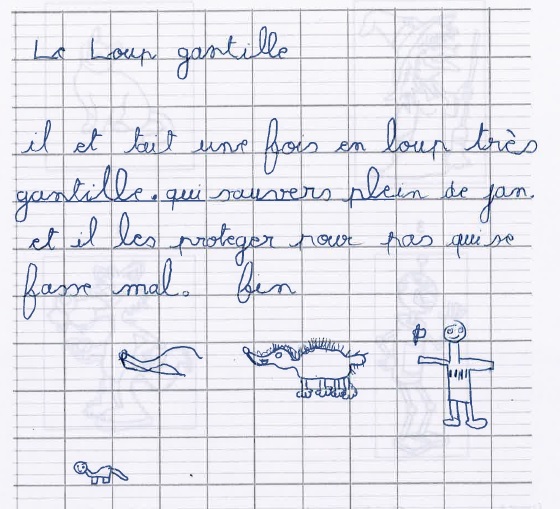 Le Loup gantille
il et tait une fois en loup très
gantille. qui sauvers plein de jan.
et il les proteger pour pas qui se
fasse mal. fin